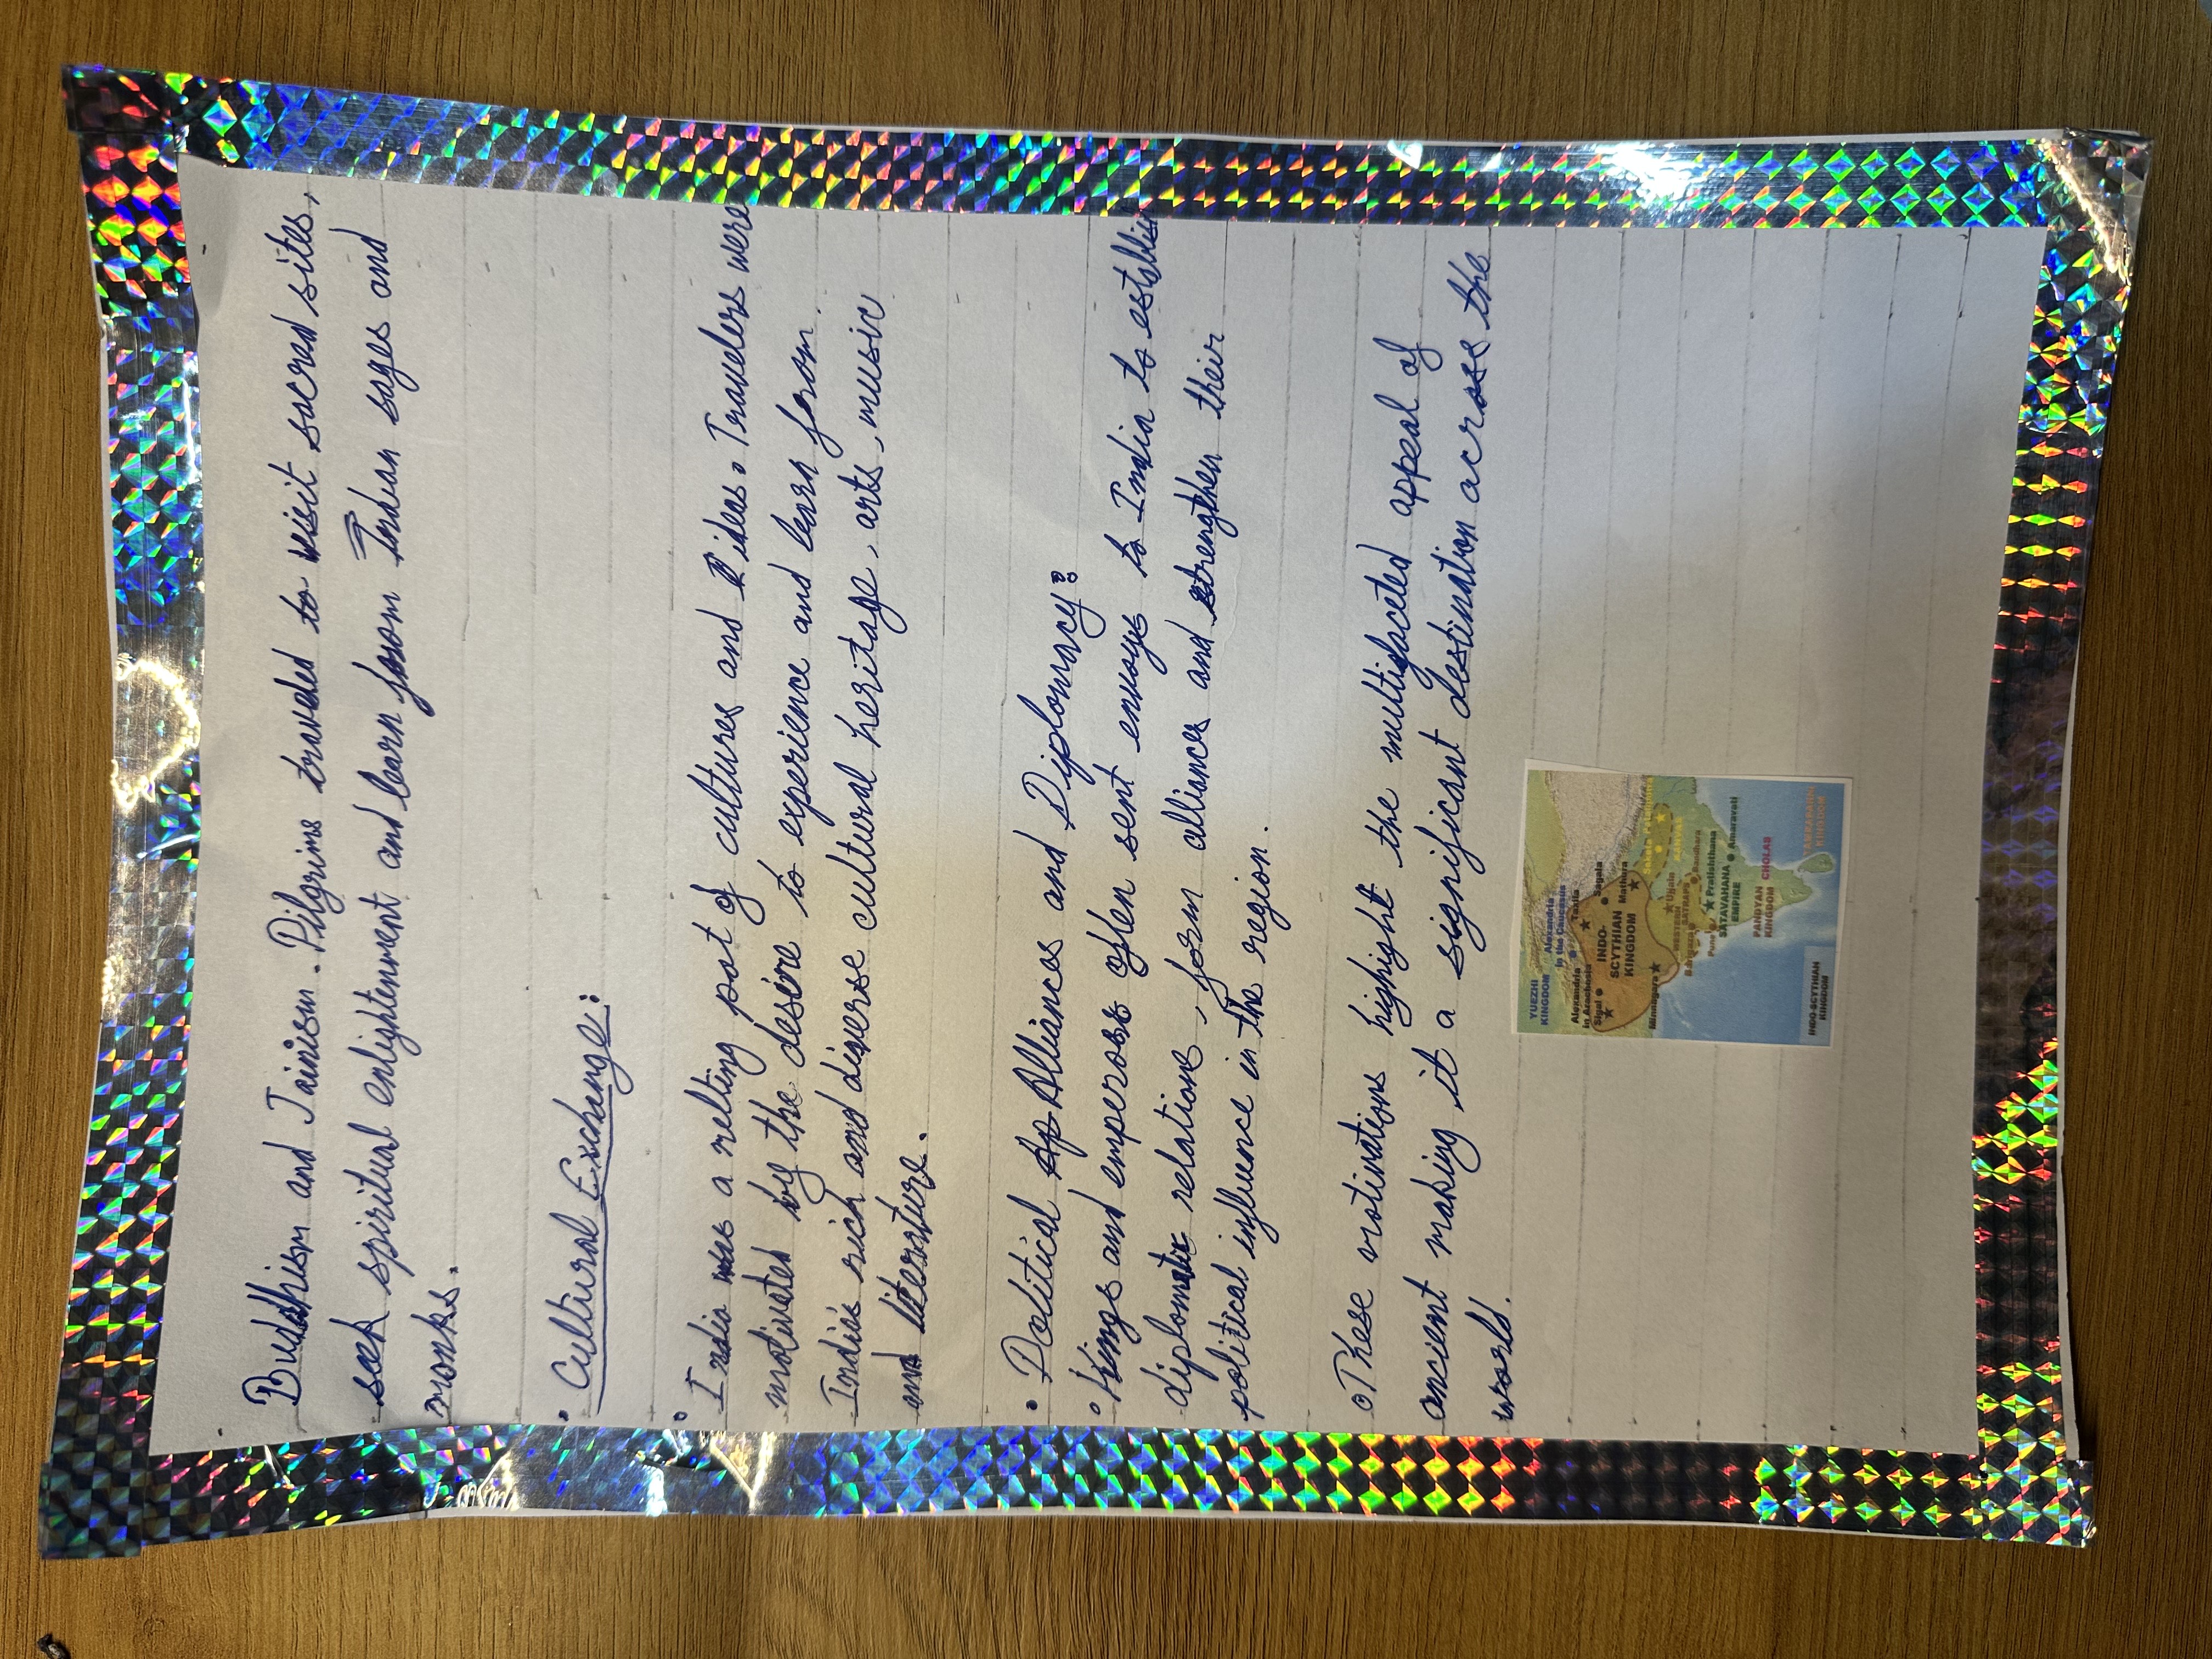 Buddhism and Jainism. Pilgrims traveled to visit sacred sites,
seek spiritual enlightenment and learn from Indian sages and
monks.
• Cultural Exchange:
° India was a melting pot of cultures and ideas. Travelers were
motivated by the desire to experience and learn from
India's rich and diverse cultural heritage, arts, music
and literature.
• Political Ap Alliances and Diplomacy:
° Kings and emperors often sent envoys to India to establish
diplomatic relations, form alliances and strengthen their
political influence in the region.
° These motivations highight the multifaceted appeal of
ancient making it a significant destination across the
world.
YUEZHI
KINGDOM
Alexandria
in the Caucasus
Alexandria
in Arachosia
Taxila
Sigal
Sagala
INDO-
SCYTHIAN
KINGDOM
Mathura
Minnagara
Saketa Pataliputra
KANVAS
Ujjain
WESTERN
SATRAPS
Barigaza
Dandhara
Pune
Pratishthana
SATAVAHANA
EMPIRE
Amaravati
PANDYAN
KINGDOM
CHOLAS
TAMRAPARNI
KINGDOM
INDO-SCYTHIAN
KINGDOM